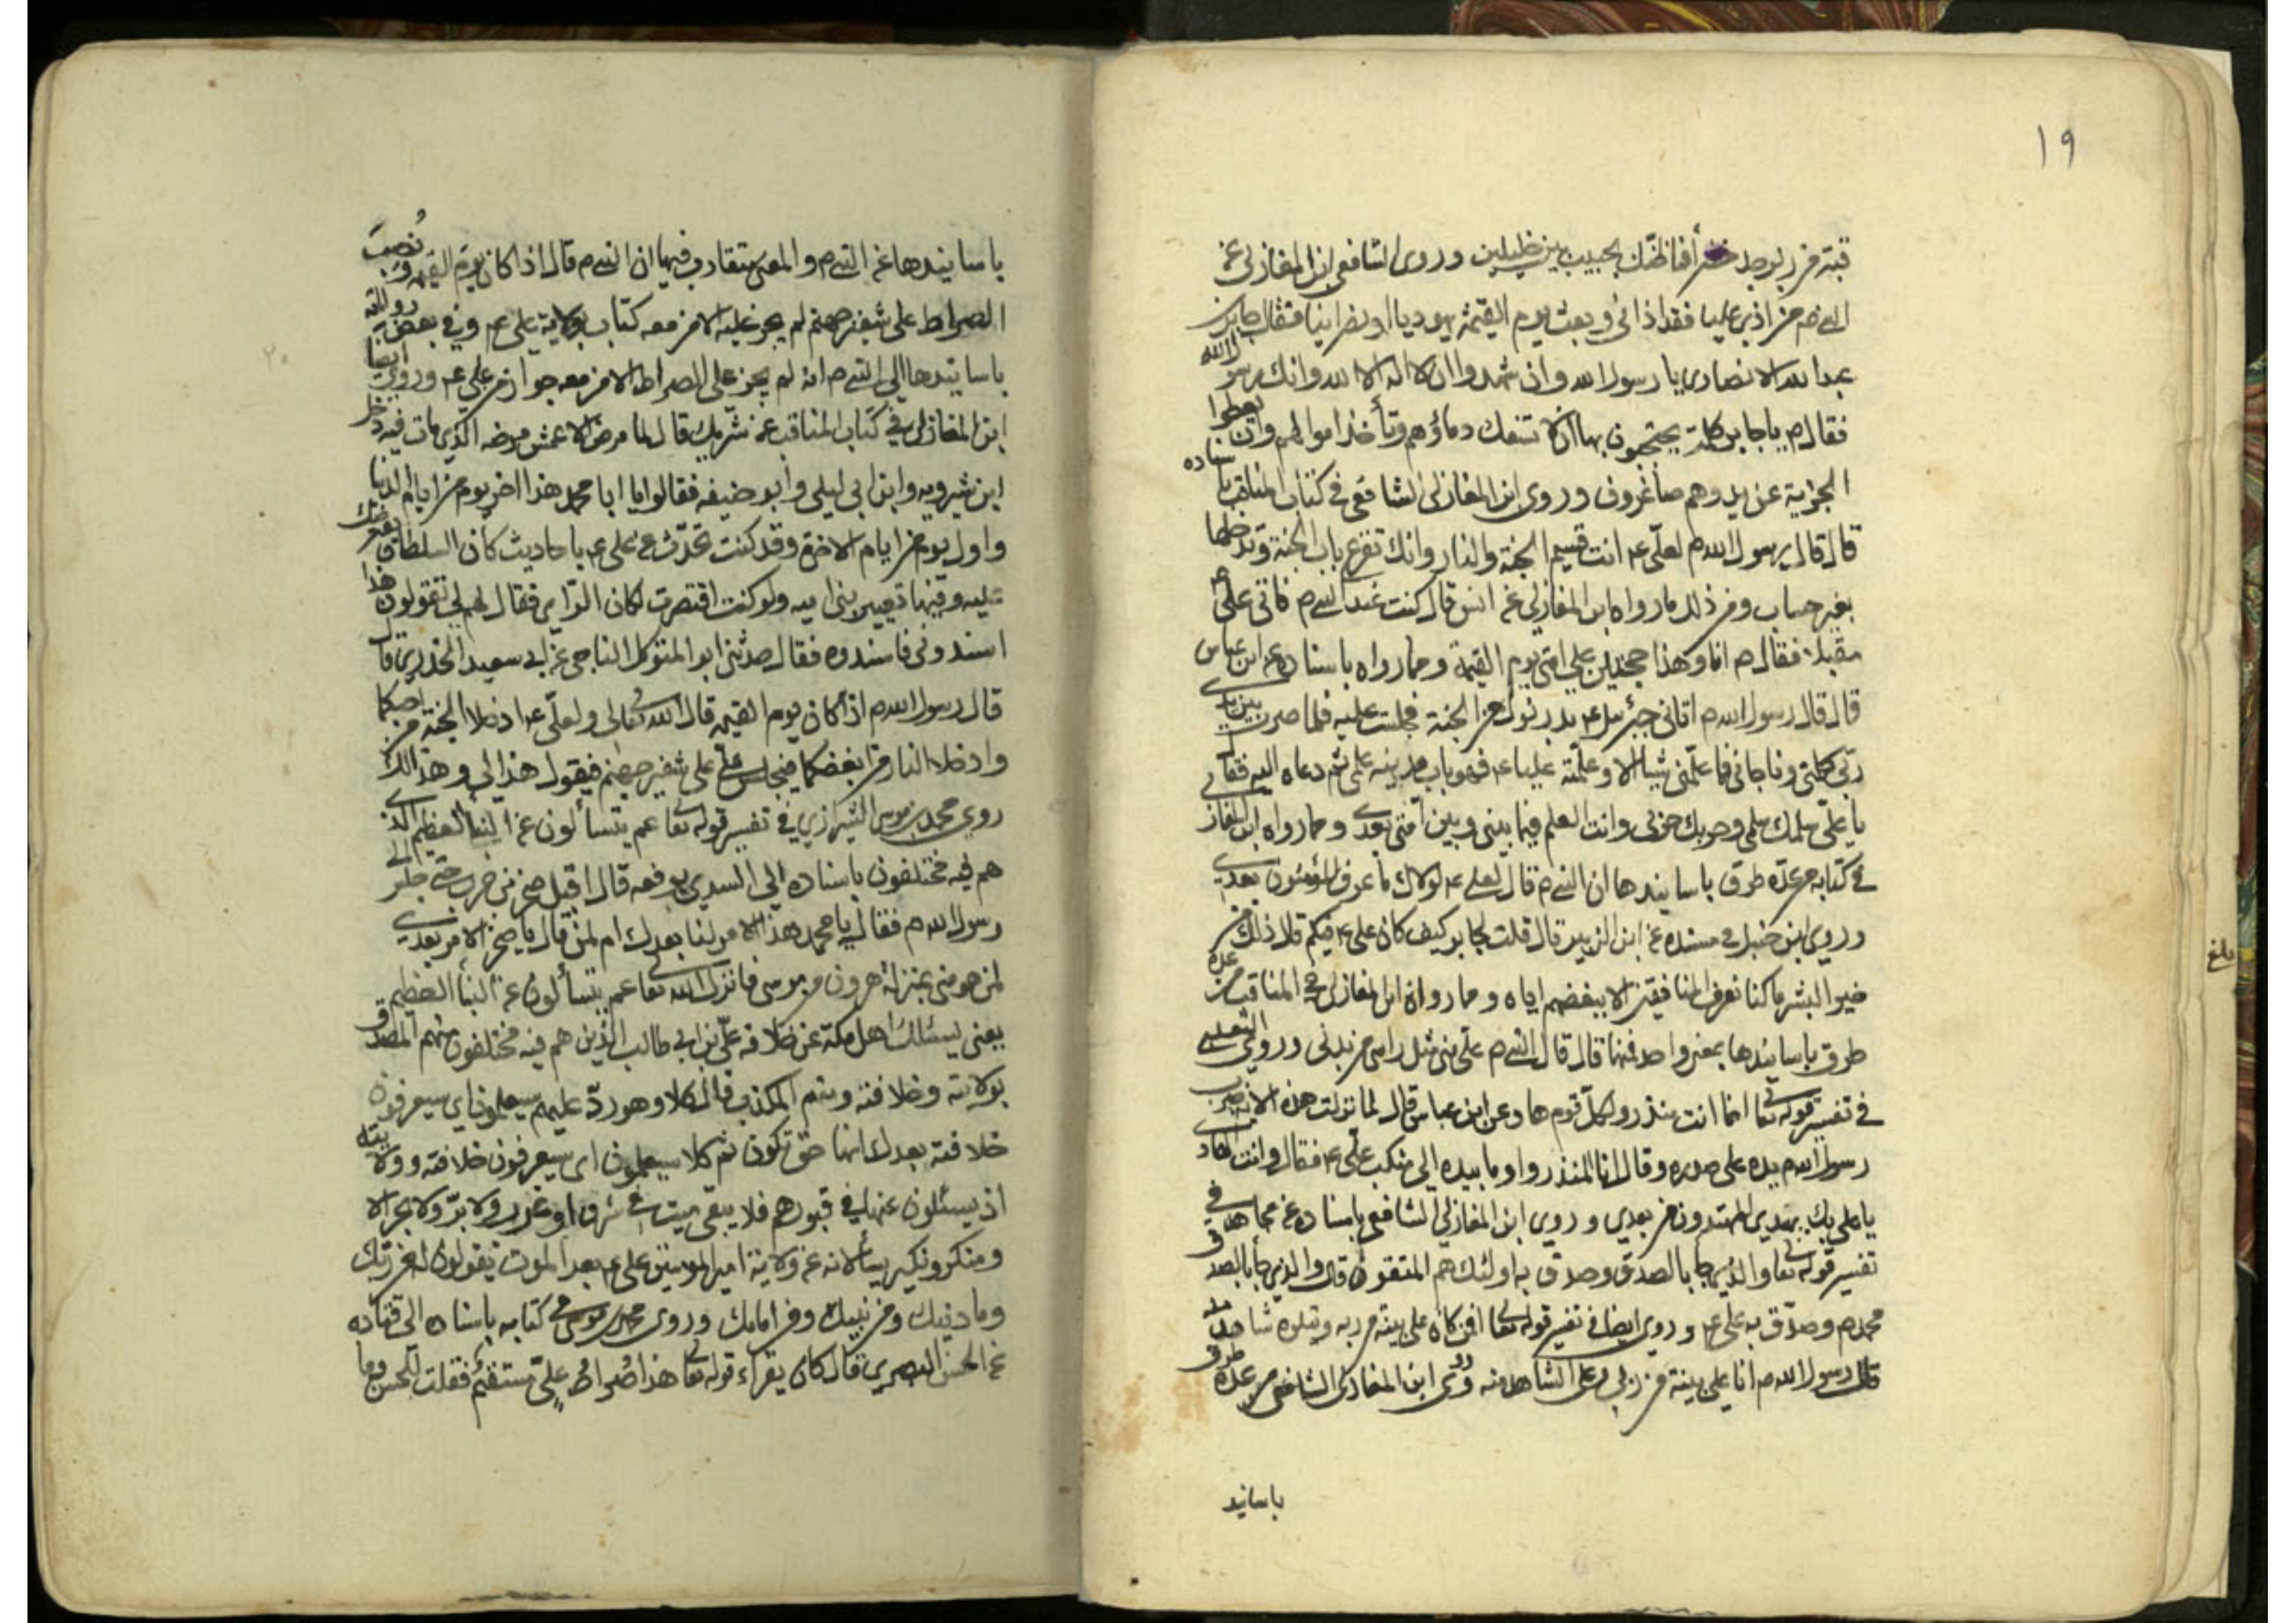 ١٩
قبة من زبرجد خضر أفما ظنك بحبيب بين خليلين وروى الشافعي ابن المغازلي عن
النبي ص من اذى عليا فقد اذاني وبعث يوم القيمة يهوديا او نصرانيا فقال جابر بن
عبد الله الانصاري يا رسول الله وان شهدوا ان لا اله الا الله وانك رسول الله
فقال ص يا جابر كلمة يحتجزون بها ان لا تسفك دماؤهم وتأخذ اموالهم وان يعطوا
الجزية عن يد وهم صاغرون وروى ابن المغازلي الشافعي في كتاب المناقب باسناده
قال قال رسول الله ص لعلي ع انت قسيم الجنة والنار وانك تقرع باب الجنة وتدخلها
بغير حساب ومن ذلك ما رواه ابن المغازلي عن انس قال كنت عند النبي ص فاتى علي ع
مقبلا فقال ص انا وهذا حجة لله على امتي يوم القيمة ومما رواه باسناده عن ابن عباس
قال قال رسول الله ص اتاني جبرئيل ع بدرنوك من الجنة فجلست عليه فلما صرت بين يدي
ربي كلمني وناجاني فما علمني شيئا الا وعلمته عليا ع فهو باب مدينة علمي ثم دعاه اليه فقال
يا علي سلمك سلمي وحربك حربي وانت العلم فيما بيني وبين امتي بعدي ومما رواه ابن المغازلي
في كتابه من عدة طرق باسانيدها ان النبي ص قال لعلي ع لولاك ما عرف المؤمنون بعدي
وروى ابن حنبل في مسنده عن ابن الزبير قال قلت لجابر كيف كان علي ع فيكم قال ذلك من
خير البشر ما كنا نعرف المنافقين الا ببغضهم اياه ومما رواه ابن المغازلي في المناقب من عدة
طرق باسانيدها بمعنى واحد فمنها قال قال النبي ص علي مني مثل راسي من بدني وروى الثعلبي
في تفسير قوله تعالى انما انت منذر ولكل قوم هاد عن ابن عباس قال لما نزلت هذه الاية ضرب
رسول الله ص يده على صدره وقال انا المنذر واومأ بيده الى منكب علي ع فقال وانت الهادي
يا علي بك يهتدي المهتدون من بعدي وروى ابن المغازلي الشافعي باسناده عن مجاهد في
تفسير قوله تعالى والذي جاء بالصدق وصدق به اولئك هم المتقون قال والذي جاء بالصدق
محمد ص وصدق به علي ع وروى ايضا في تفسير قوله تعالى افمن كان على بينة من ربه ويتلوه شاهد منه
قال رسول الله ص انا على بينة من ربي وعلي الشاهد منه وروى ابن المغازلي الشافعي من عدة طرق
باسانيد
بلغ
٢٠
باسانيدها عن النبي ص والمعنى متقارب فيها ان النبي ص قال اذا كان يوم القيمة ونُصِبَ
الصراط على شفير جهنم لم يجز عليه الا من معه كتاب بولاية علي ع وفي بعض رواياته
باسانيدها الى النبي ص انه لم يجز على الصراط الا من معه جواز من علي ع وروى ايضا
ابن المغازلي في كتاب المناقب عن شريك قال لما مرض الاعمش مرضه الذي مات فيه دخل
ابن شبرويه وابن ابي ليلى وابو حنيفه فقالوا يا ابا محمد هذا اخر يوم من ايام الدنيا
واول يوم من ايام الاخرة وقد كنت تحدث عن علي ع باحاديث كان السلطان يعترضك
عليه وفيها تعيير بني اميه ولو كنت اقتصرت لكان الراي فقال لهم لي تقولون هذا
اسندوني فاسندوه فقال حدثني ابو المتوكل الناجي عن ابي سعيد الخدري قال
قال رسول الله ص اذا كان يوم القيمه قال الله تعالى لي ولعلي ع ادخلا الجنة من احبكما
وادخلا النار من ابغضكما فيجلس علي على شفير جهنم فيقول هذا لي وهذا لك
روى محمد بن موسى الشيرازي في تفسير قوله تعالى عم يتسألون عن النبأ العظيم الذي
هم فيه مختلفون باسناده الى السدي يرفعه قال اقبل صخر بن حرب حتى جلس الى
رسول الله ص فقال يا محمد هذا الامر لنا بعدك ام لمن قال يا صخر الامر بعدي
لمن هو مني بمنزلة هرون من موسى فانزل الله تعالى عم يتسألون عن النبأ العظيم
يعني يسئلك اهل مكة عن خلافه علي بن ابي طالب الذين هم فيه مختلفون منهم المصدق
بولايته وخلافته ومنهم المكذب قال كلا وهو ردّ عليهم سيعلمون اي سيعرفون
خلافته بعدك انها حق تكون ثم كلا سيعلمون اي سيعرفون خلافته وولايته
اذ يسئلون عنها في قبورهم فلا يبقى ميت في شرق او غرب ولا برّ ولا بحر الا
ومنكر ونكير يسألانه عن ولاية امير المومنين علي ع بعد الموت يقولون له من ربك
وما دينك ومن نبيك ومن امامك وروى محمد بن موسى في كتابه باسناده الى قتاده
عن الحسن البصري قال كان يقراء قوله تعالى هذا صراطُ عليٍّ مستقيم فقلت للحسن وما